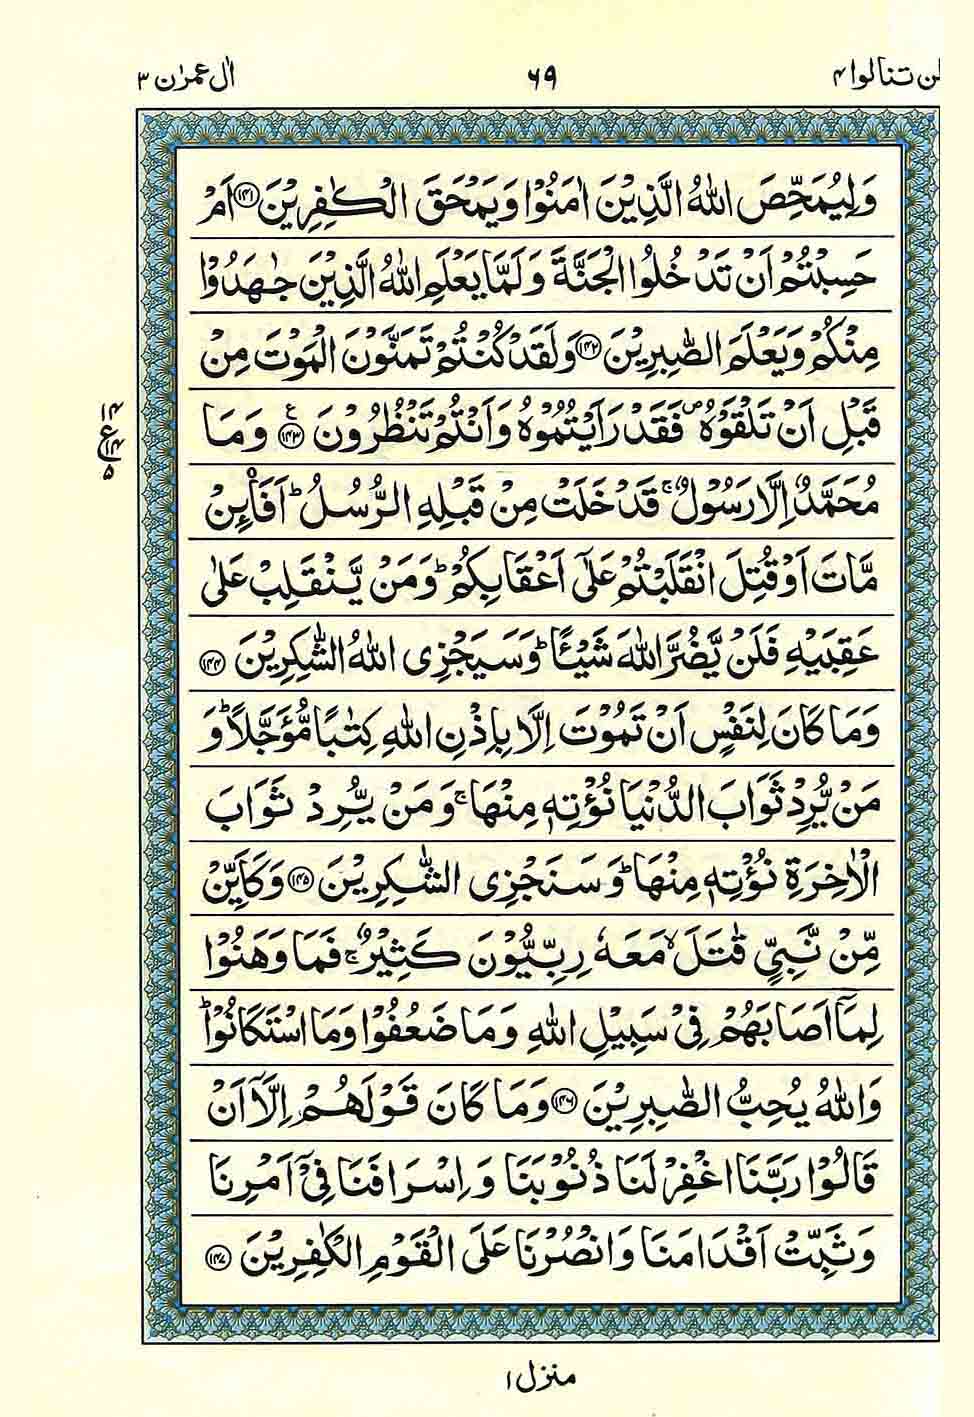 لن تنالوا ٤ ٦٩ اٰل عمرٰن ٣
وَلِيُمَحِّصَ اللّٰهُ الَّذِيْنَ اٰمَنُوْا وَيَمْحَقَ الْكٰفِرِيْنَ ﴿۱۴۱﴾ اَمْ
حَسِبْتُمْ اَنْ تَدْخُلُوا الْجَنَّةَ وَلَمَّا يَعْلَمِ اللّٰهُ الَّذِيْنَ جٰهَدُوْا
مِنْكُمْ وَيَعْلَمَ الصّٰبِرِيْنَ ﴿۱۴۲﴾ وَلَقَدْ كُنْتُمْ تَمَنَّوْنَ الْمَوْتَ مِنْ
قَبْلِ اَنْ تَلْقَوْهُ ۖ فَقَدْ رَاَيْتُمُوْهُ وَاَنْتُمْ تَنْظُرُوْنَ ﴿۱۴۳﴾ ع وَمَا
۱۴
ع ۱۴
۵
مُحَمَّدٌ اِلَّا رَسُوْلٌ ۚ قَدْ خَلَتْ مِنْ قَبْلِهِ الرُّسُلُ ؕ اَفَا۠ئِنْ
مَّاتَ اَوْ قُتِلَ انْقَلَبْتُمْ عَلٰٓى اَعْقَابِكُمْ ؕ وَمَنْ يَّنْقَلِبْ عَلٰى
عَقِبَيْهِ فَلَنْ يَّضُرَّ اللّٰهَ شَيْـًٔا ؕ وَسَيَجْزِى اللّٰهُ الشّٰكِرِيْنَ ﴿۱۴۴﴾
وَمَا كَانَ لِنَفْسٍ اَنْ تَمُوْتَ اِلَّا بِاِذْنِ اللّٰهِ كِتٰبًا مُّؤَجَّلًا ؕ وَ
مَنْ يُّرِدْ ثَوَابَ الدُّنْيَا نُؤْتِهٖ مِنْهَا ۚ وَمَنْ يُّرِدْ ثَوَابَ
الْاٰخِرَةِ نُؤْتِهٖ مِنْهَا ؕ وَسَنَجْزِى الشّٰكِرِيْنَ ﴿۱۴۵﴾ وَكَاَيِّنْ
مِّنْ نَّبِيٍّ قٰتَلَ ۙ مَعَهٗ رِبِّيُّوْنَ كَثِيْرٌ ۚ فَمَا وَهَنُوْا
لِمَآ اَصَابَهُمْ فِيْ سَبِيْلِ اللّٰهِ وَمَا ضَعُفُوْا وَمَا اسْتَكَانُوْا ؕ
وَاللّٰهُ يُحِبُّ الصّٰبِرِيْنَ ﴿۱۴۶﴾ وَمَا كَانَ قَوْلَهُمْ اِلَّآ اَنْ
قَالُوْا رَبَّنَا اغْفِرْ لَنَا ذُنُوْبَنَا وَاِسْرَافَنَا فِيْٓ اَمْرِنَا
وَثَبِّتْ اَقْدَامَنَا وَانْصُرْنَا عَلَى الْقَوْمِ الْكٰفِرِيْنَ ﴿۱۴۷﴾
منزل ۱